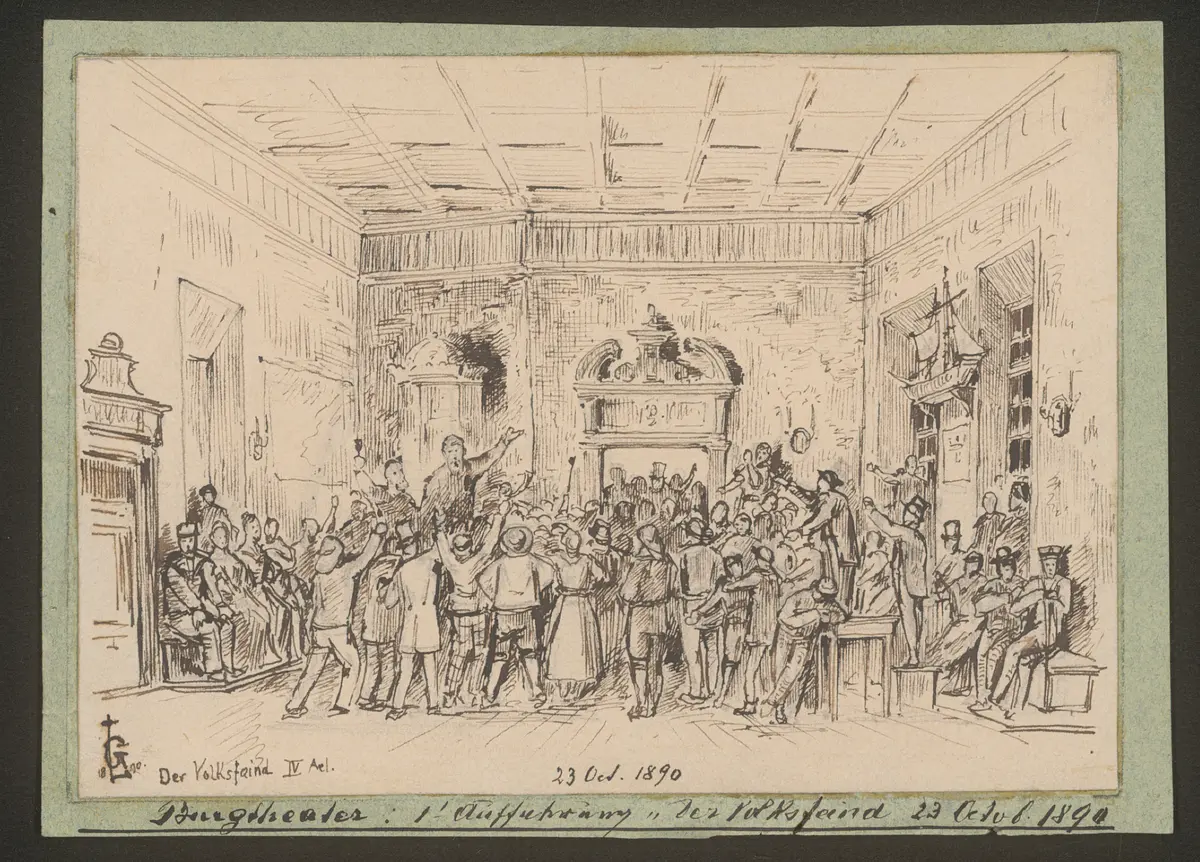 18 G 90.
Der Volksfaind IV Act.
23 Oct. 1890
Burgtheater: 1' Aufführung „Der Volksfaind 23 Octob. 1890